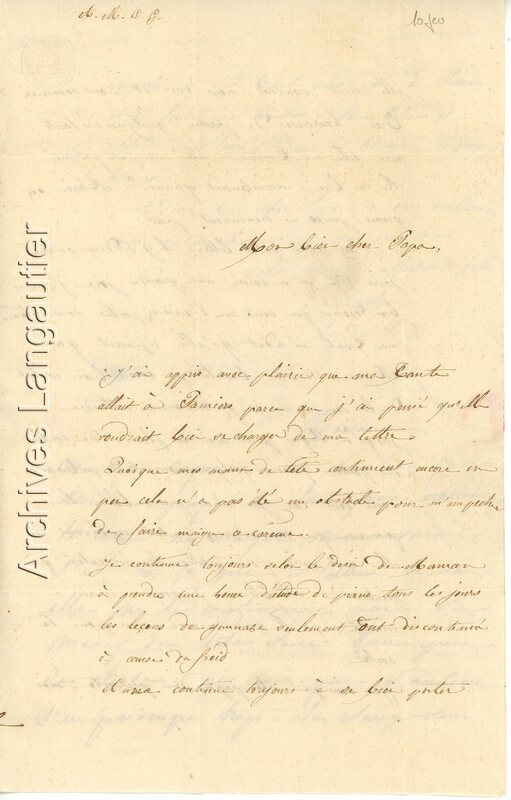 A. M. D. G.
10 feo
Mon bien cher Papa,
J'ai appris avec plaisir que ma Tante
allait à Pamiers parce que j'ai pensé qu'elle
voudrait bien se charger de ma lettre.
Quoique mes maux de tête continuent encore un
peu cela n'a pas été un obstacle pour m'empecher
de faire maigre ce carême.
Je continue toujours selon le désir de Maman
à prendre une heure d'étude de piano tous les jours
les leçons de gymnase seulement ont discontinué
à cause du froid
continue toujours à se bien porter
Archives Langautier